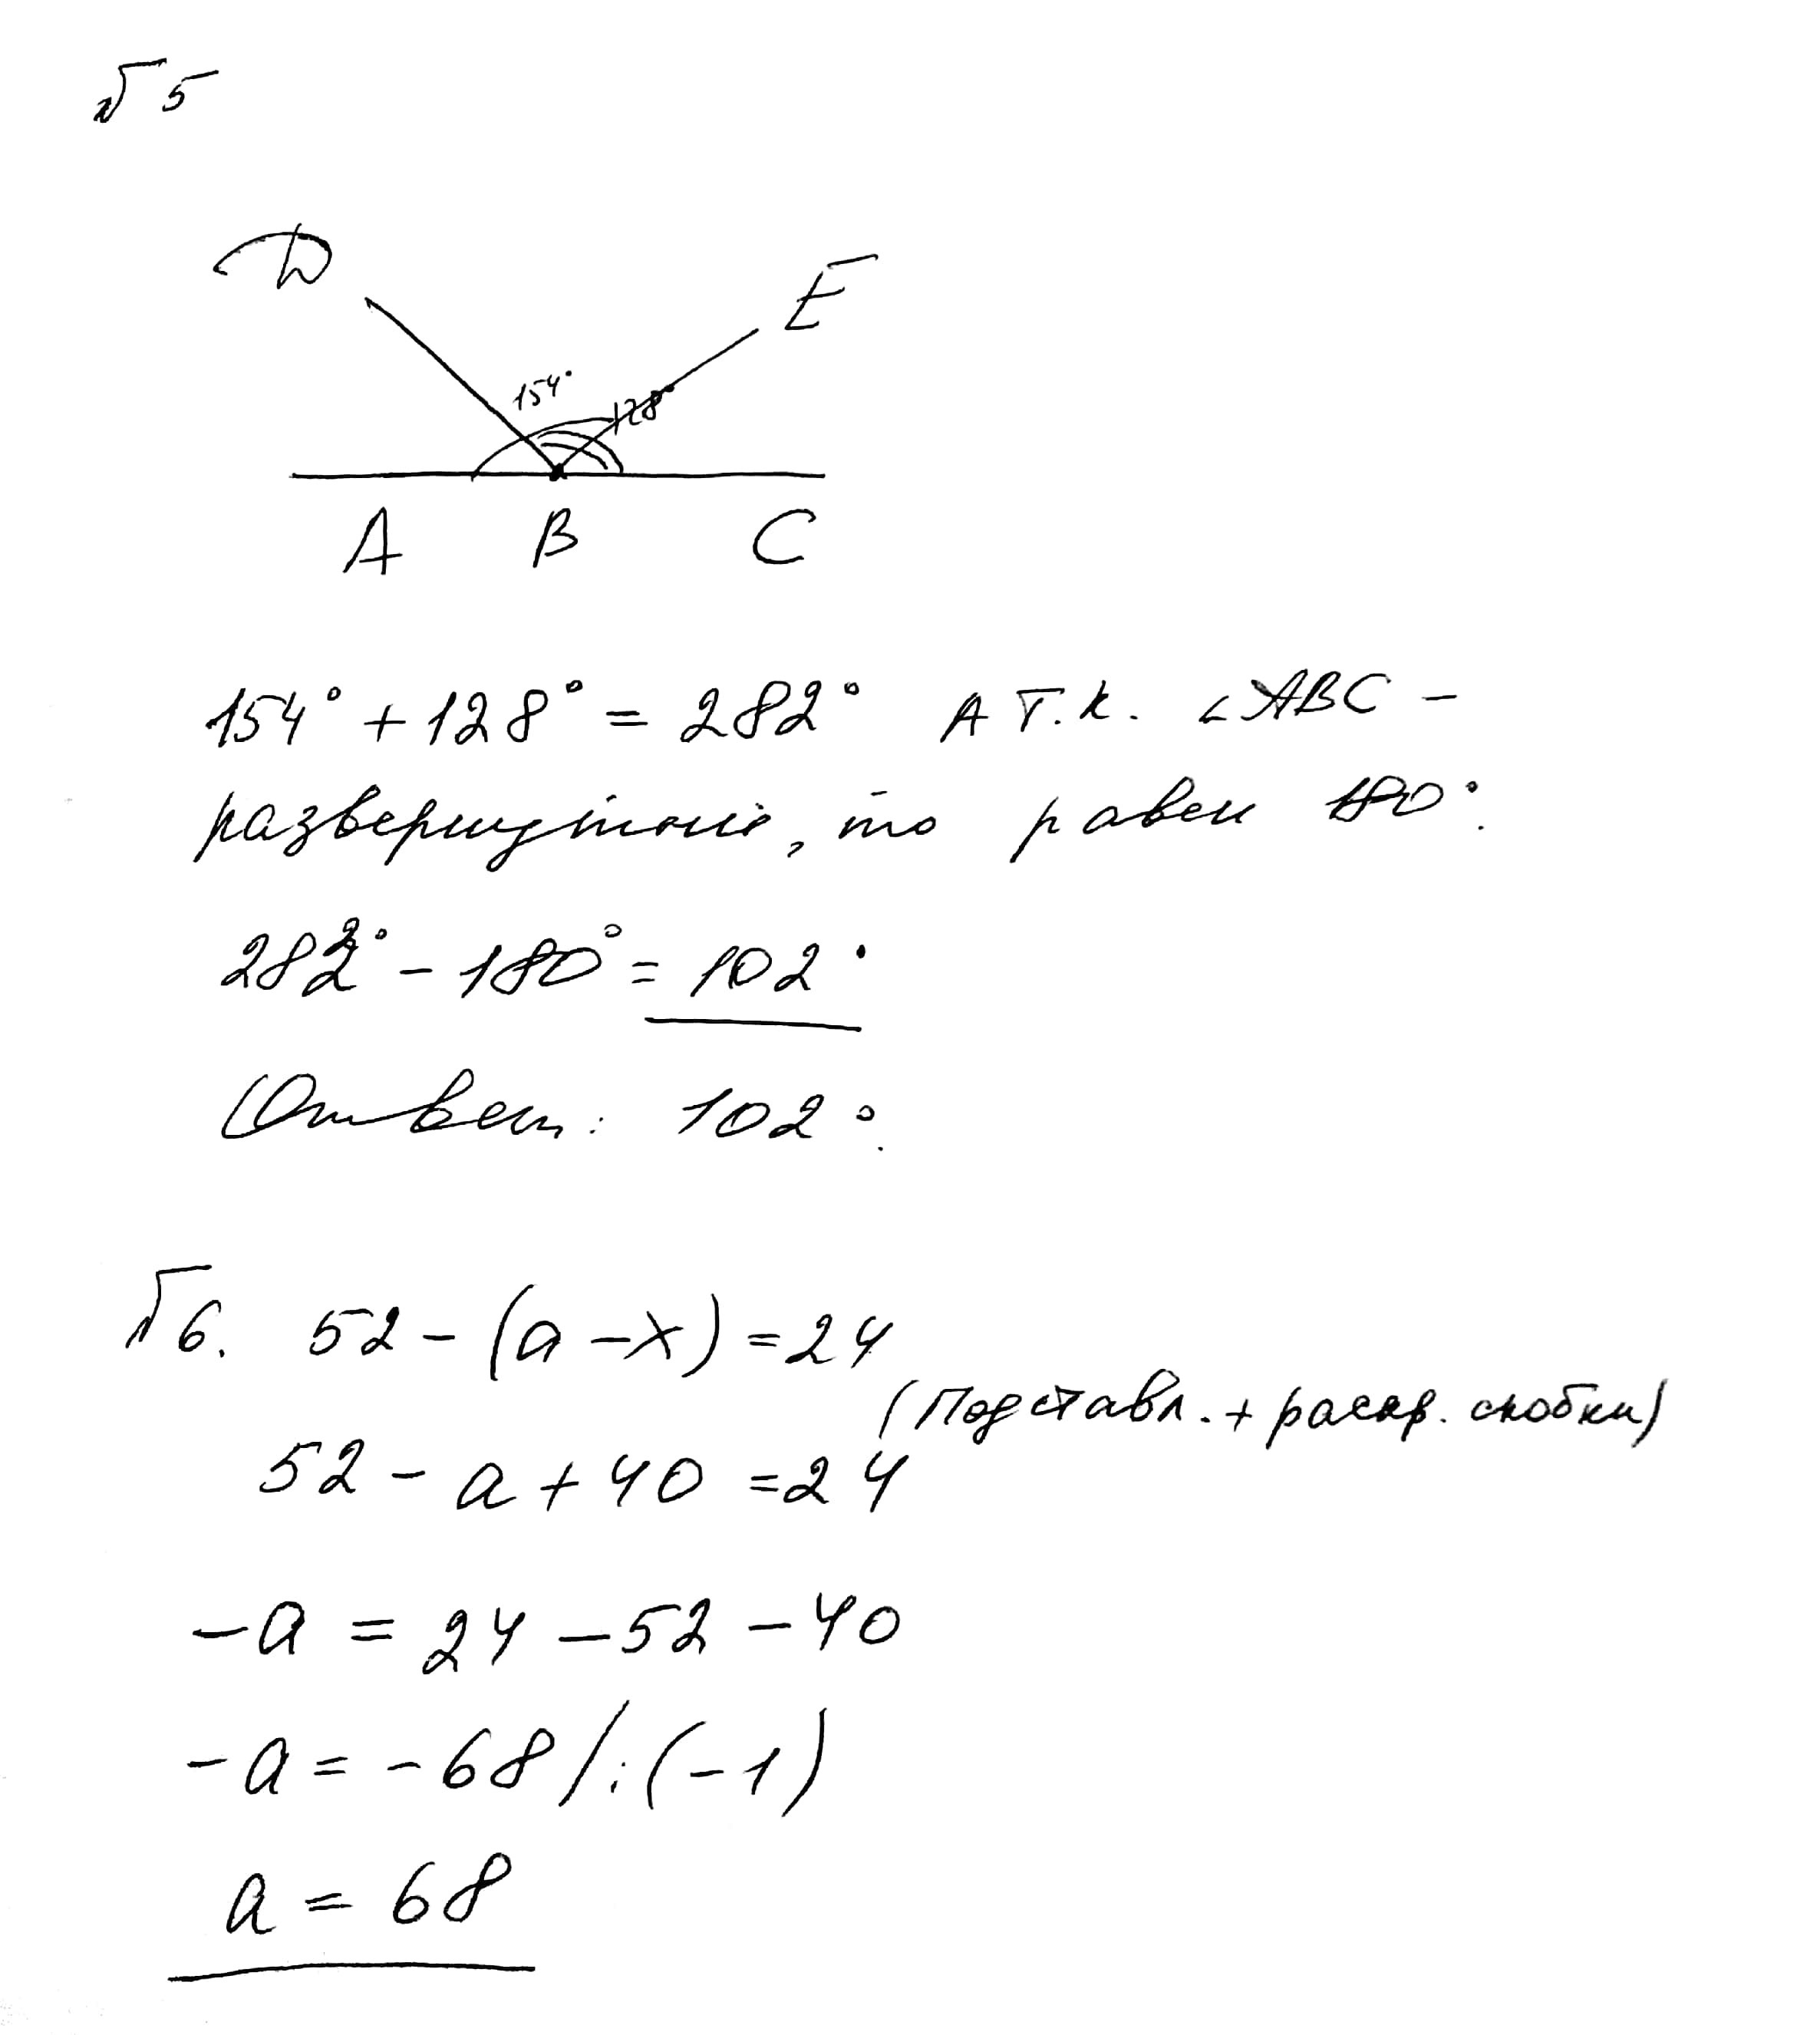 №5
D
E
154°
128°
A B C
154° + 128° = 282° А т.к. ∠ABC –
развернутый, то равен 180°.
282° – 180° = 102°
Ответ: 102°.
№6. 52 – (a – x) = 24
(Подставл. + раскр. скобки)
52 – a + 40 = 24
–a = 24 – 52 – 40
–a = –68 /:(–1)
a = 68